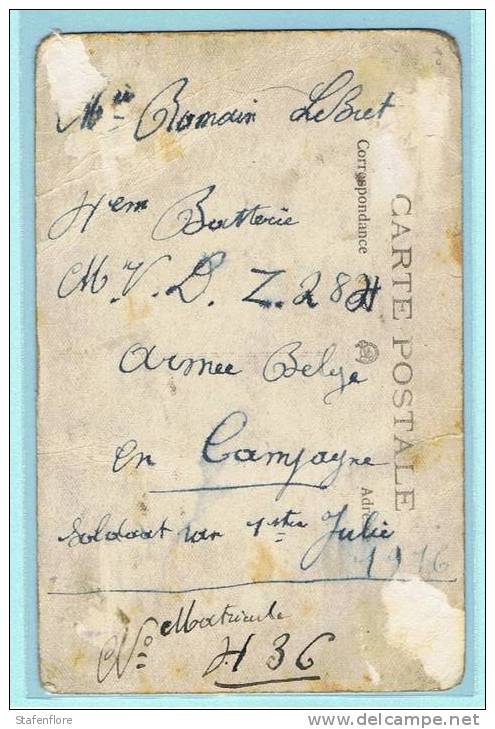 Mr Romain LeBret
4em Batterie
M.V.D. Z.284
Armee Belge
en Campagne
soldaat van 1ste Julie
1916
No Matricule
436
CARTE POSTALE
Correspondance
Adre
Stafenflore
delcampe.net